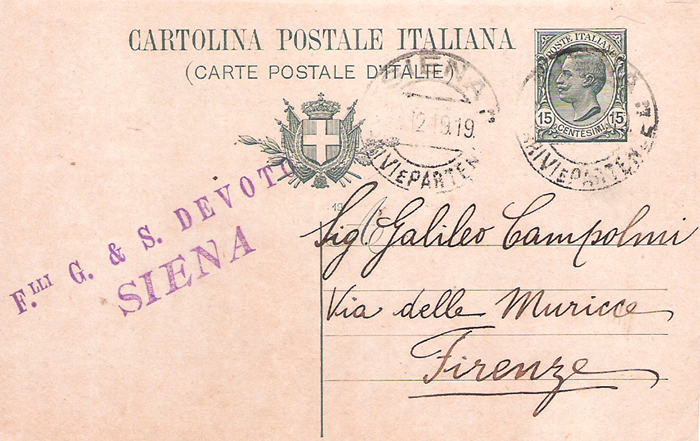 CARTOLINA POSTALE ITALIANA
(CARTE POSTALE D'ITALIE)
POSTE ITALIANE
15 CENTESIMI 15
SIENA
12.19.19.
ARRIVI E PARTENZE
F.LLI G. & S. DEVOTO
SIENA
19
Sig Galileo Campolmi
Via delle Muricce
Firenze